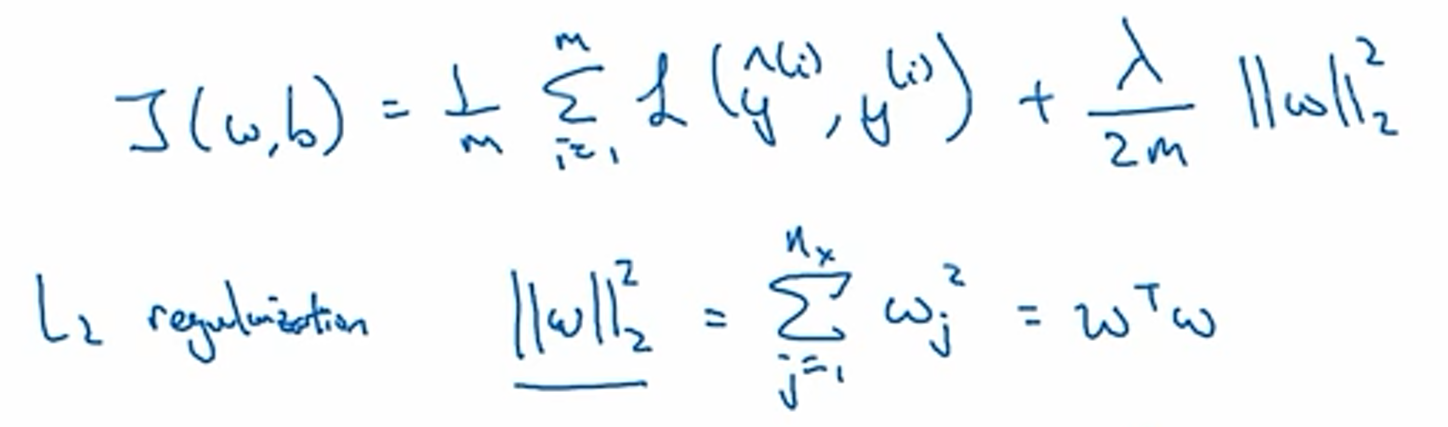 J(w,b) = 1/m Σ_{i=1}^{m} ℒ(ŷ^{(i)}, y^{(i)}) + λ/2m ||w||_2^2
L_2 regularization ||w||_2^2 = Σ_{j=1}^{n_x} w_j^2 = w^T w